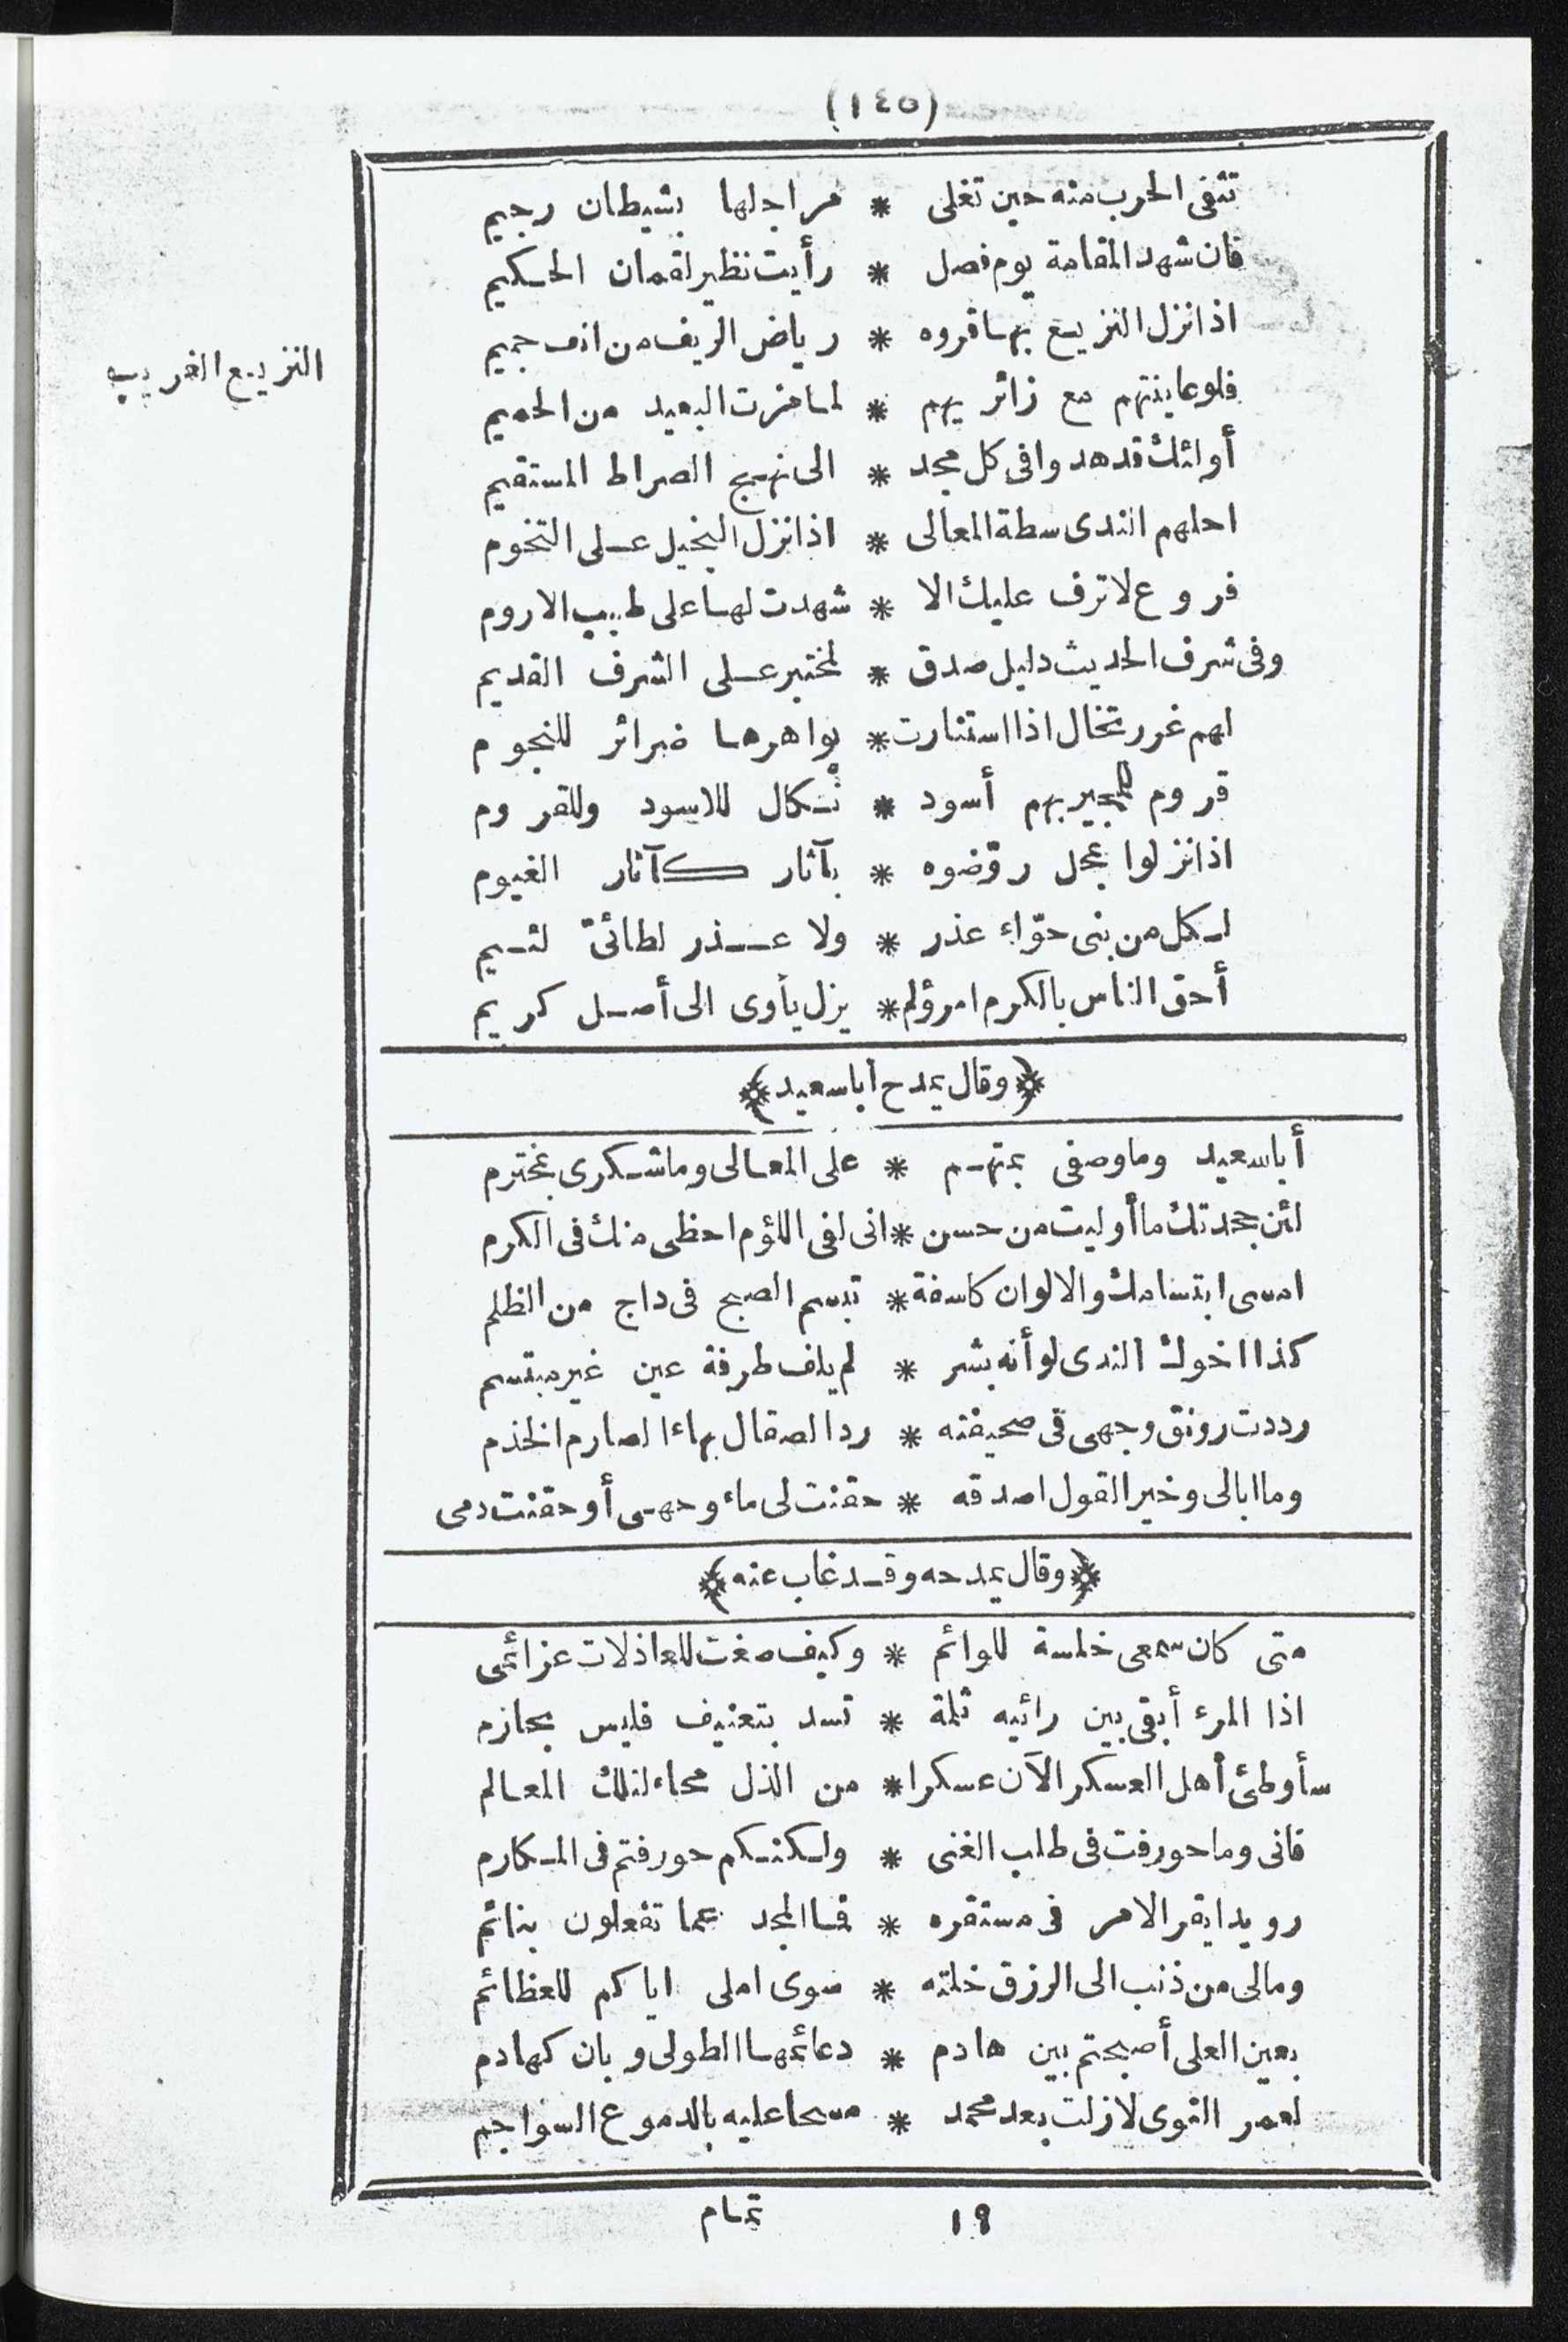 (١٤٥)
تثفى الحرب منه حين تغلى * مراجلها بشيطان رجيم
فان شهد المقامة يوم فصل * رأيت نظير لقمان الحكيم
اذا نزل النزيع بهم قروه * رياض الريف من انف جميم
النزيع الغريب
فلو عاينتهم مع زائريهم * لما مزت البعيد من الحميم
أولئك قد هدوا فى كل مجد * الى نهج الصراط المستقيم
احلهم الندى سطة المعالى * اذا نزل البخيل على التخوم
فروع لا ترف عليك الا * شهدت لها على طيب الاروم
وفى شرف الحديث دليل صدق * لمختبر على الشرف القديم
لهم غرر تخال اذا استنارت * بواهرها ضرائر للنجوم
قروم للمجير بهم أسود * نكال للاسود وللقروم
اذا نزلوا بمحل روّضوه * بآثار كآثار الغيوم
لكل من بنى حوّاء عذر * ولا عذر لطائىّ لئيم
أحق الناس بالكرم امرؤ لم * يزل يأوى الى أصل كريم
﴿وقال يمدح أبا سعيد﴾
أبا سعيد وما وصفى بمتهم * على المعالى وما شكرى بمخترم
لئن جحدتك ما أوليت من حسن * انى لفى اللؤم احظى منك فى الكرم
امسى ابتسامك والالوان كاسفة * تبسم الصبح فى داج من الظلم
كذا اخوك الندى لو أنه بشر * لم يلف طرفة عين غير مبتسم
رددت رونق وجهى فى صحيفته * رد الصقال بهاء الصارم الخذم
وما ابالى وخير القول اصدقه * حقنت لى ماء وجهى أو حقنت دمى
﴿وقال يمدحه وقد غاب عنه﴾
متى كان سمعى خلسة للوائم * وكيف صغت للعاذلات عزائمى
اذا المرء أبقى بين رائيه ثلمة * تسد بتعنيف فليس بحازم
سأوطئ أهل العسكر الآن عسكرا * من الذل محاء لتلك المعالم
فانى وما حورفت فى طلب الغنى * ولكنكم حورفتم فى المكارم
رويدا يقر الامر فى مستقره * فما المجد عما تفعلون بنائم
ومالى من ذنب الى الرزق خلته * سوى املى اياكم للعظائم
بعين العلى أصبحتم بين هادم * دعائمها الطولى وبان كهادم
لعمر النوى لازلت بعد محمد * مسحا عليه بالدموع السواجم
١٩ تمام